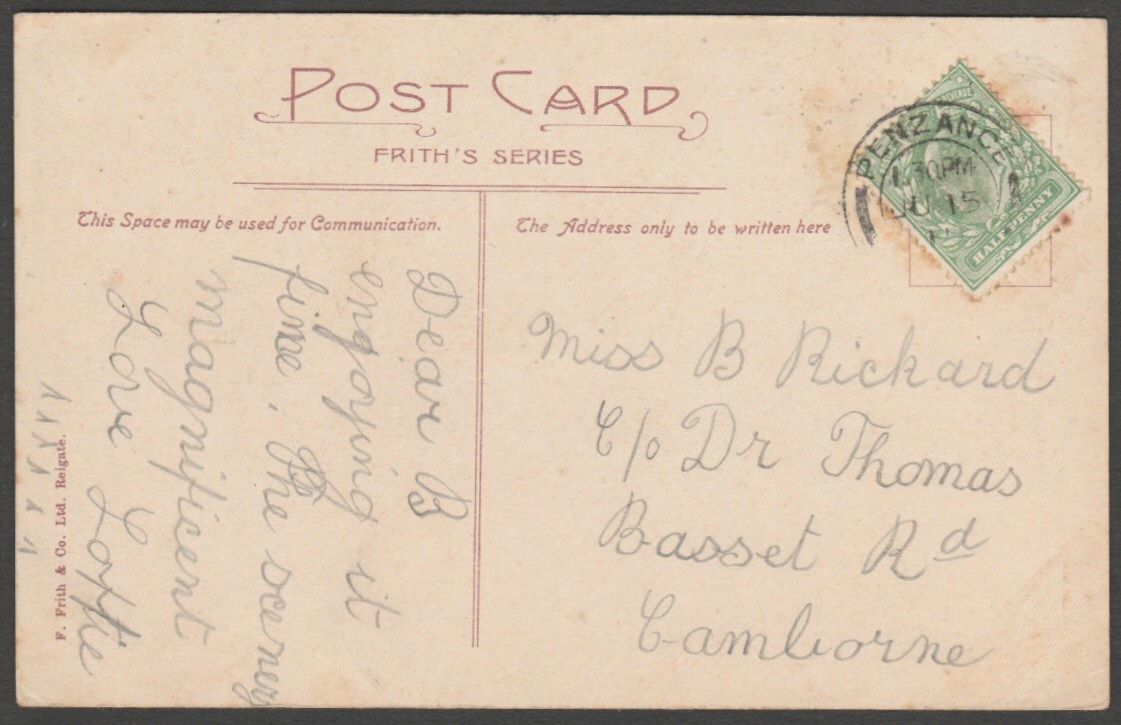 POST CARD
FRITH'S SERIES
This Space may be used for Communication.
The Address only to be written here
PENZANCE
1.30PM
JU 15
REVENUE
HALF PENNY
Dear B
enjoying it
fine. The scenery
magnificent
Love Lottie
Miss B Rickard
C/o Dr Thomas
Basset Rd
Camborne
F. Frith & Co. Ltd. Reigate.